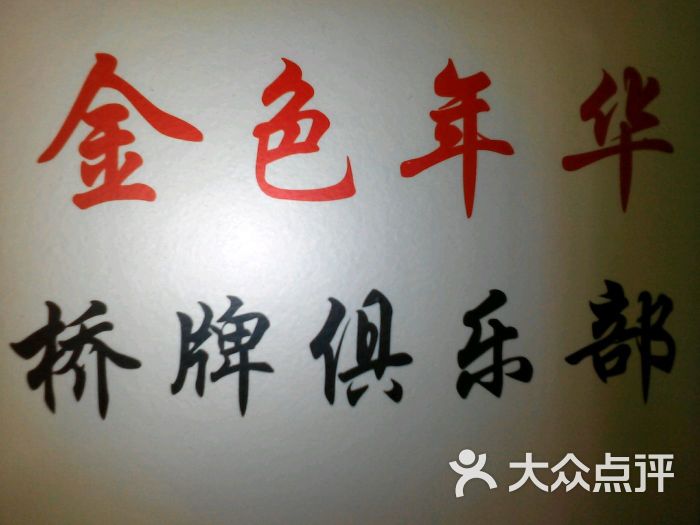 金色年华
桥牌俱乐部
大众点评